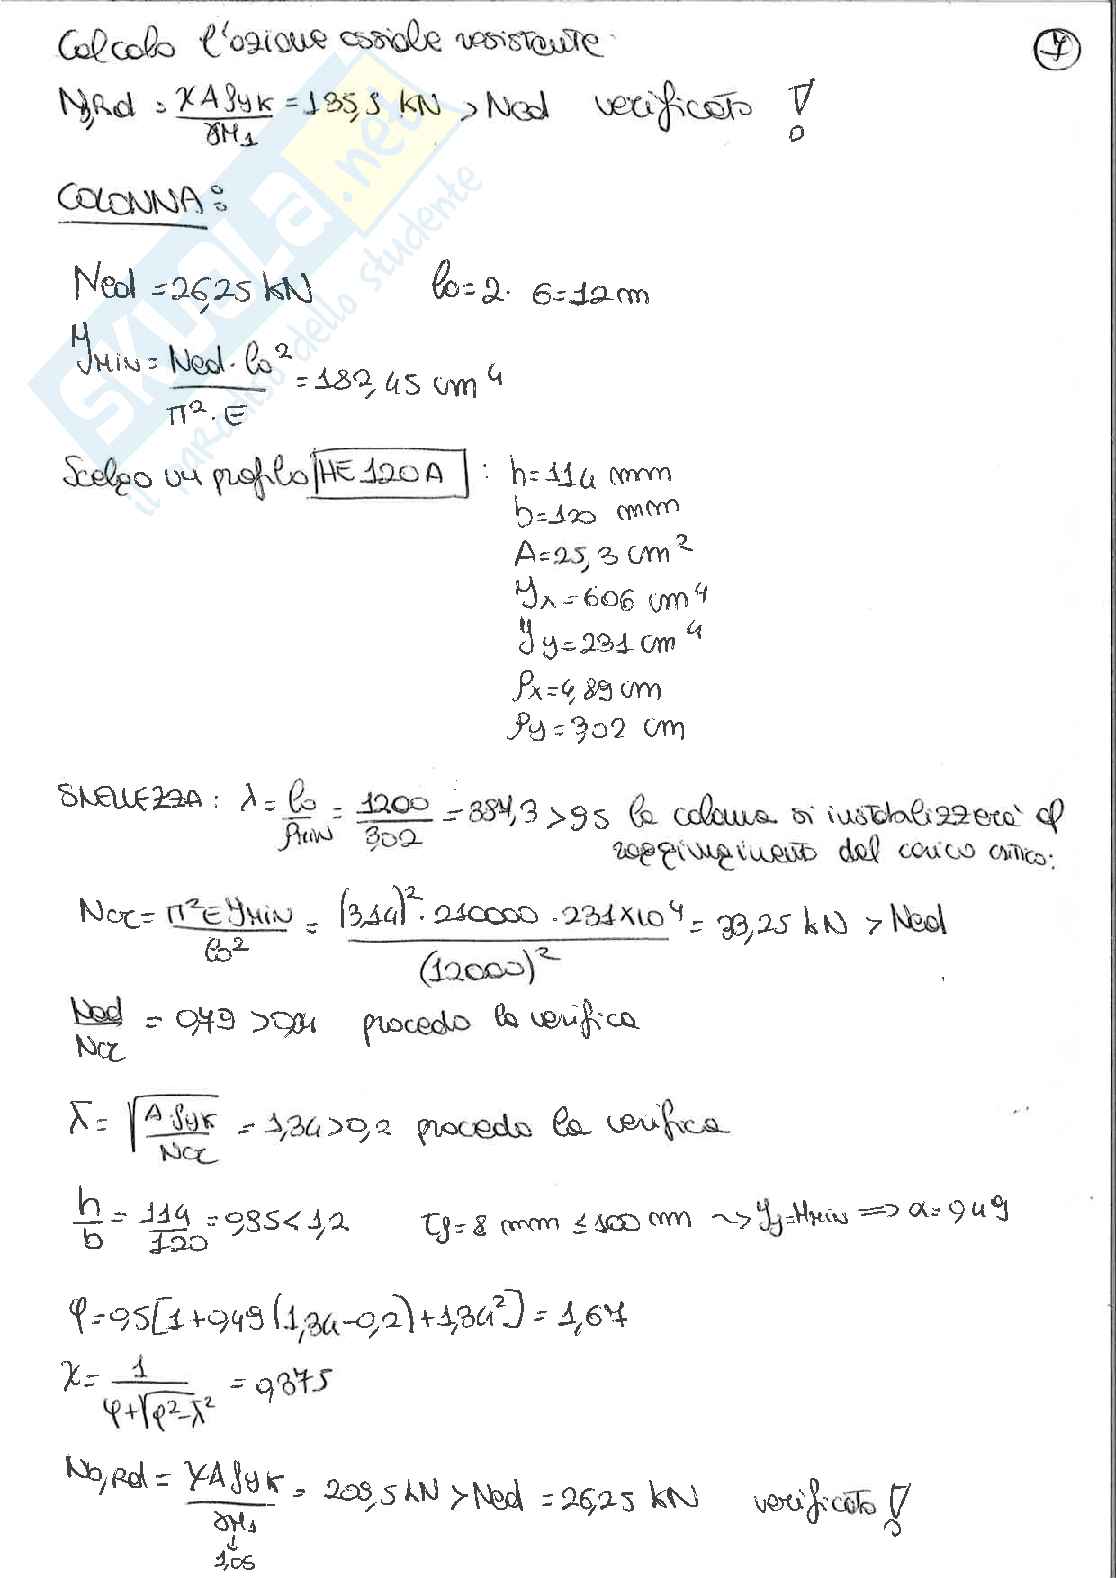 Calcolo l'azione assiale resistente
7
Nb,Rd = χAfyk/γM1 = 135,5 kN > Ned verificato !
COLONNA:
Ned = 26,25 kN lo = 2 · 6 = 12 m
JMIN = Ned · lo²/π² · E = 182,45 cm⁴
Scelgo un profilo HE 120 A : h = 114 mm
b = 120 mm
A = 25,3 cm²
Jx = 606 cm⁴
Jy = 231 cm⁴
ρx = 4,89 cm
ρy = 3,02 cm
SNELLEZZA: λ = lo/ρMIN = 1200/3,02 = 397,3 > 95 la colonna si instabilizzerà al
raggiungimento del carico critico:
Ncr = π²EJMIN/lo² = (3,14)² · 210000 · 231×10⁴/(12000)² = 33,25 kN > Ned
Ned/Ncr = 0,79 > 0,04 procedo la verifica
λ̄ = √A·fyk/Ncr = 1,34 > 0,2 procedo la verifica
h/b = 114/120 = 0,95 < 1,2 tf = 8 mm ≤ 100 mm ⇝ Jy = JMIN ⟹ α = 0,49
φ = 0,5[1 + 0,49(1,34 - 0,2) + 1,34²] = 1,67
χ = 1/φ + √φ² - λ̄² = 0,375
Nb,Rd = χAfyk/γM1 = 209,5 kN > Ned = 26,25 kN verificato !
↓
1,05
SKUOLA.net
il paradiso dello studente